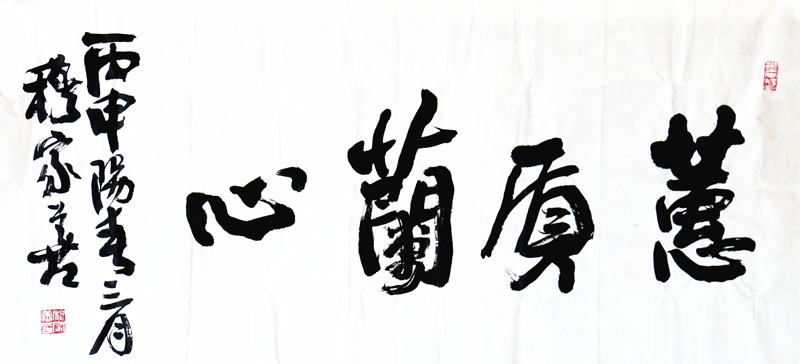 蕙质蘭心
丙申陽春三月
穆家善